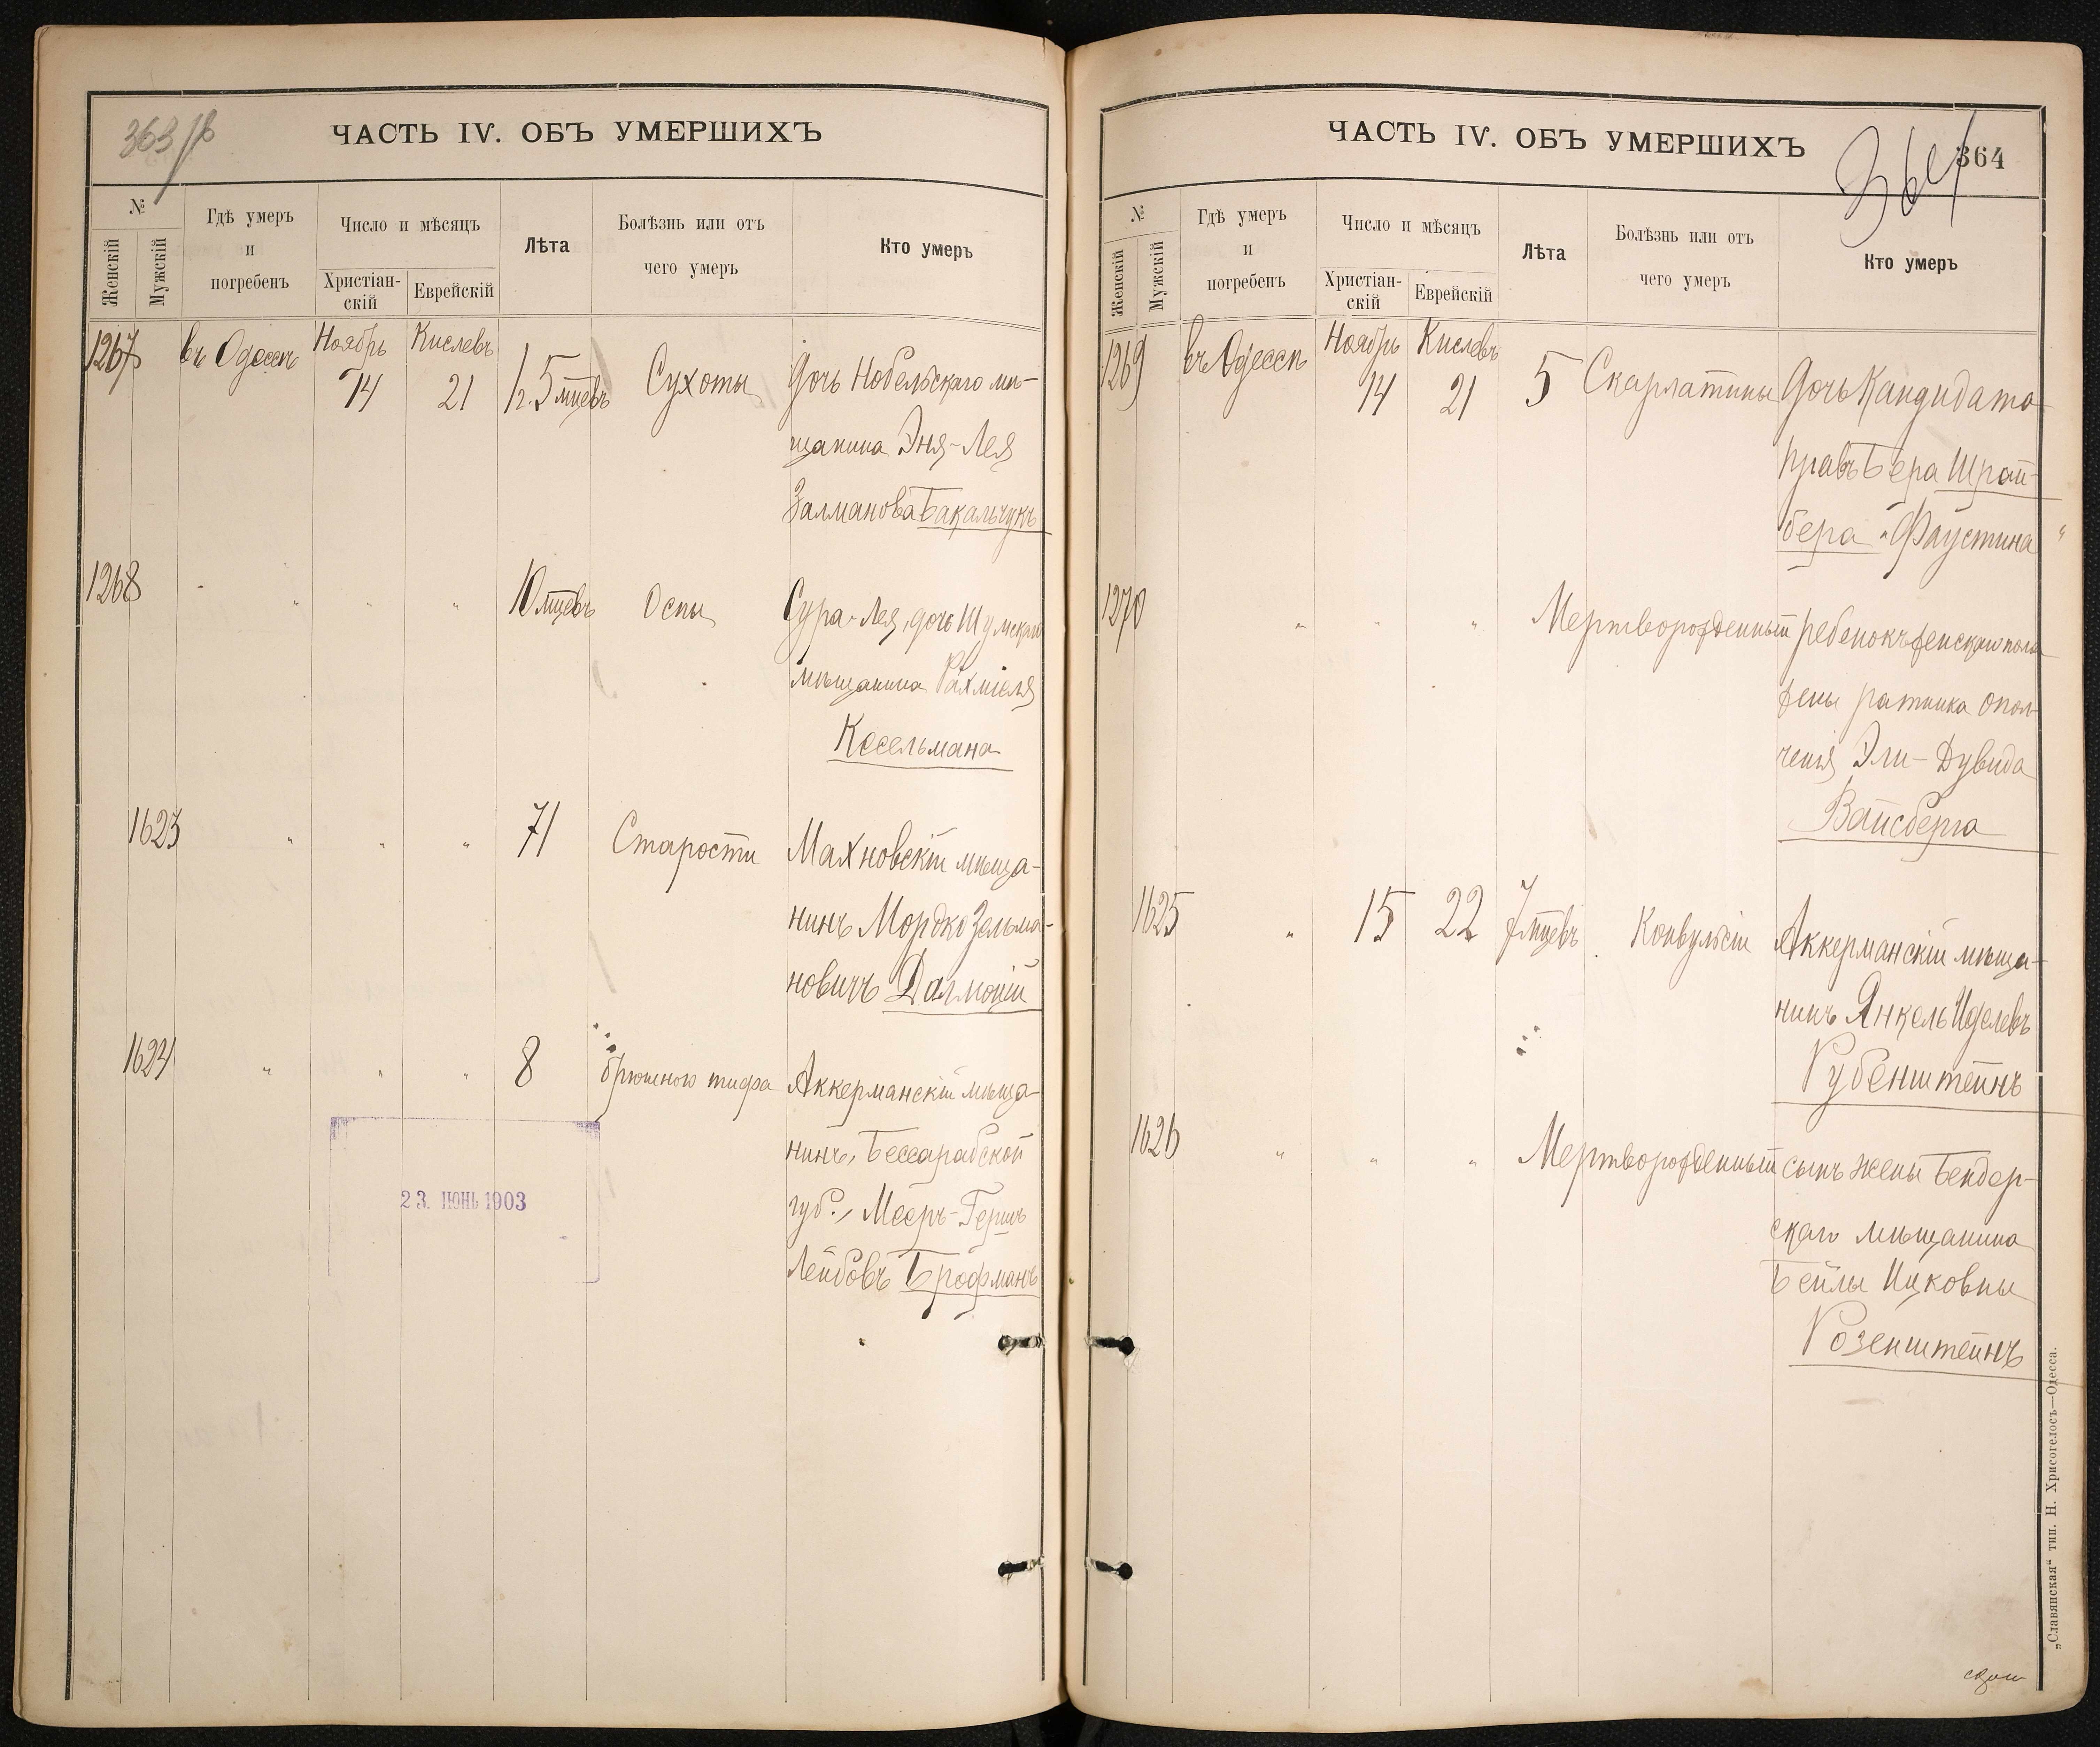 363/об
ЧАСТЬ IV. ОБЪ УМЕРШИХЪ
№
Женскій
Мужскій
Гдѣ умеръ
и
погребенъ
Число и мѣсяцъ
Христіан-
скій
Еврейскій
Лѣта
Болѣзнь или отъ
чего умеръ
Кто умеръ
1267 въ Одессѣ Ноябрь 14 Кислевъ 21 5 мцевъ Сухоты Дочь Нобельскаго мѣ-
щанина Эня-Лея
Залманова Бакальчукъ
1268 " " " " 10 мцевъ Оспы Сура-Лея, дочь Шумскаго
мѣщанина Рахміеля
Кесельмана
1623 " " " 71 Старости Махновскій мѣща-
нинъ Мордко Зельма-
новичъ
1624 " " " 8 брюшного тифа Аккерманскій мѣща-
нинъ, Бессарабской
губ., Мееръ-Гершъ
Лейбовъ Брофманъ
23. ІЮНЬ 1903
ЧАСТЬ IV. ОБЪ УМЕРШИХЪ
364
364
№
Женскій
Мужскій
Гдѣ умеръ
и
погребенъ
Число и мѣсяцъ
Христіан-
скій
Еврейскій
Лѣта
Болѣзнь или отъ
чего умеръ
Кто умеръ
1269 въ Одессѣ Ноябрь 14 Кислевъ 21 5 Скарлатины Дочь Кандидата
правъ Бера Шрай-
бера "Фаустина"
1270 " " " Мертворожденный ребенокъ женскаго пола
жены ратника опол-
ченія Эли-Дувида
Вайсберга
1625 " 15 22 7 мцевъ Конвульсіи Аккерманскій мѣща-
нинъ Янкель Иделевъ
Рубенштейнъ
1626 " " " Мертворожденный сынъ жены Бендер-
скаго мѣщанина
Бейлы Ицковны
Розенштейнъ
„Славянская“ тип. Н. Хрисогелосъ—Одесса.